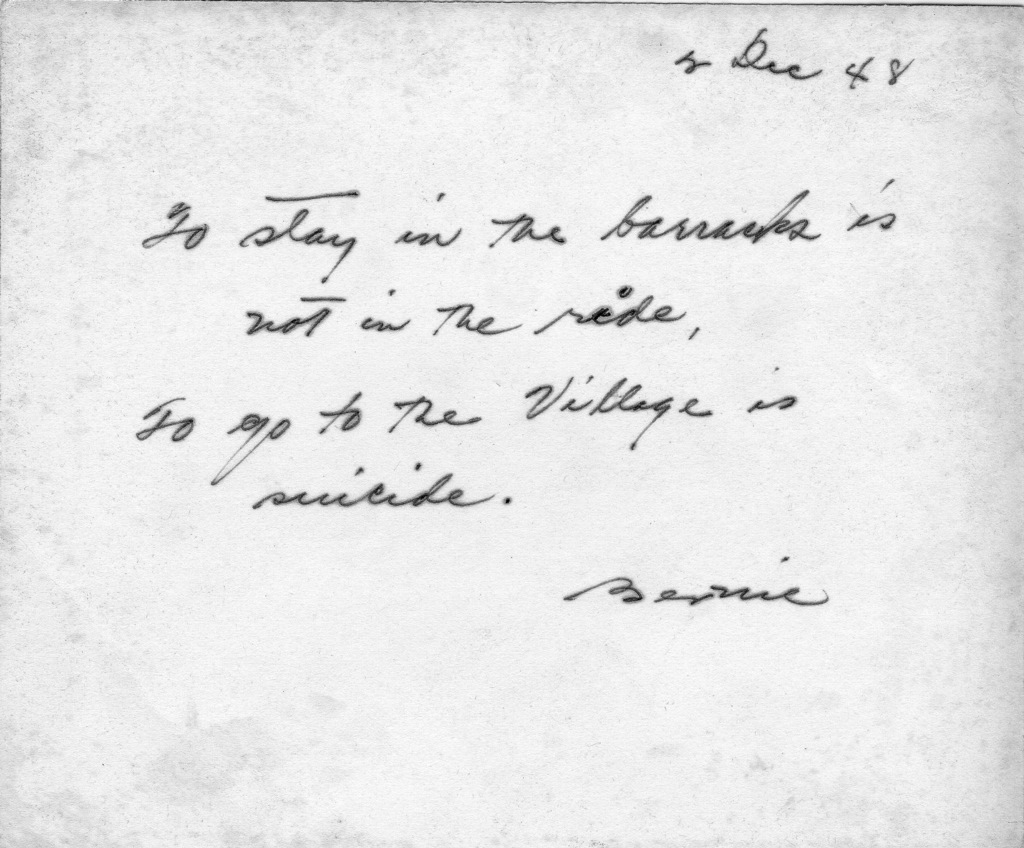 2 Dec 48
To stay in the barracks is
not in the ride,
To go to the Village is
suicide.
Bernie